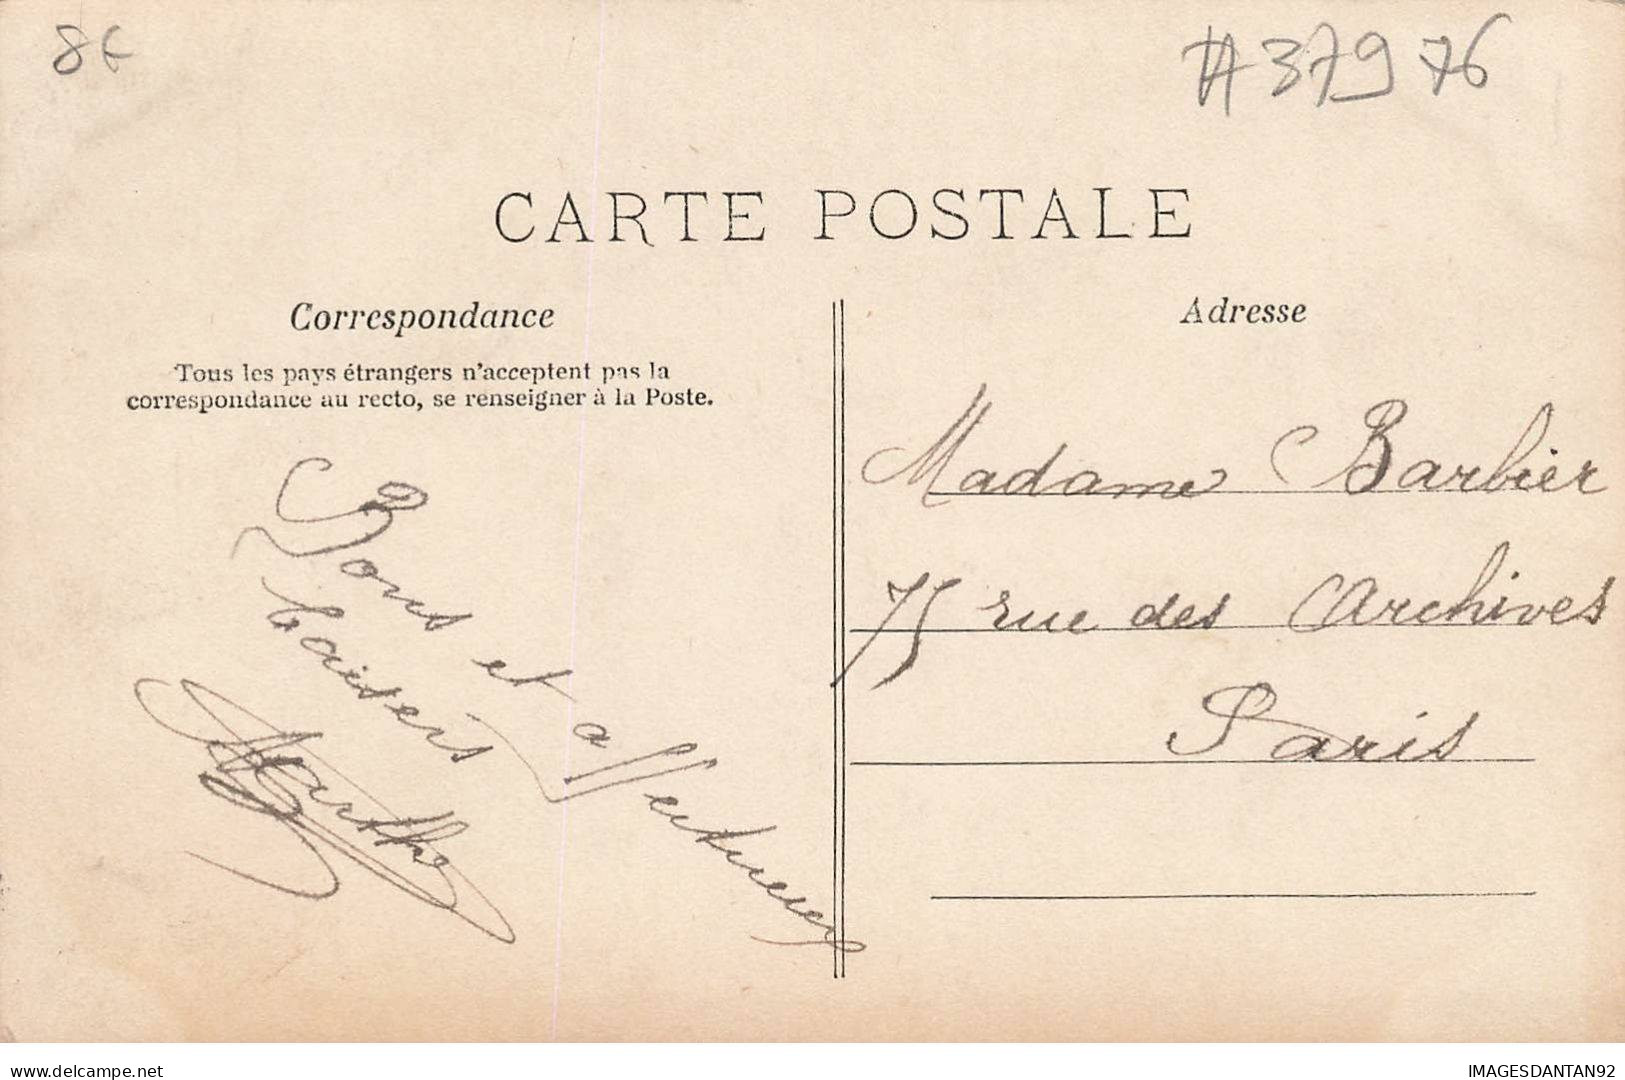 8€
#37976
CARTE POSTALE
Correspondance
Tous les pays étrangers n'acceptent pas la
correspondance au recto, se renseigner à la Poste.
Adresse
Bons et affectueux
baisers
Marthe
Madame Barbier
75 rue des Archives
Paris
delcampe.net
IMAGESDANTAN92